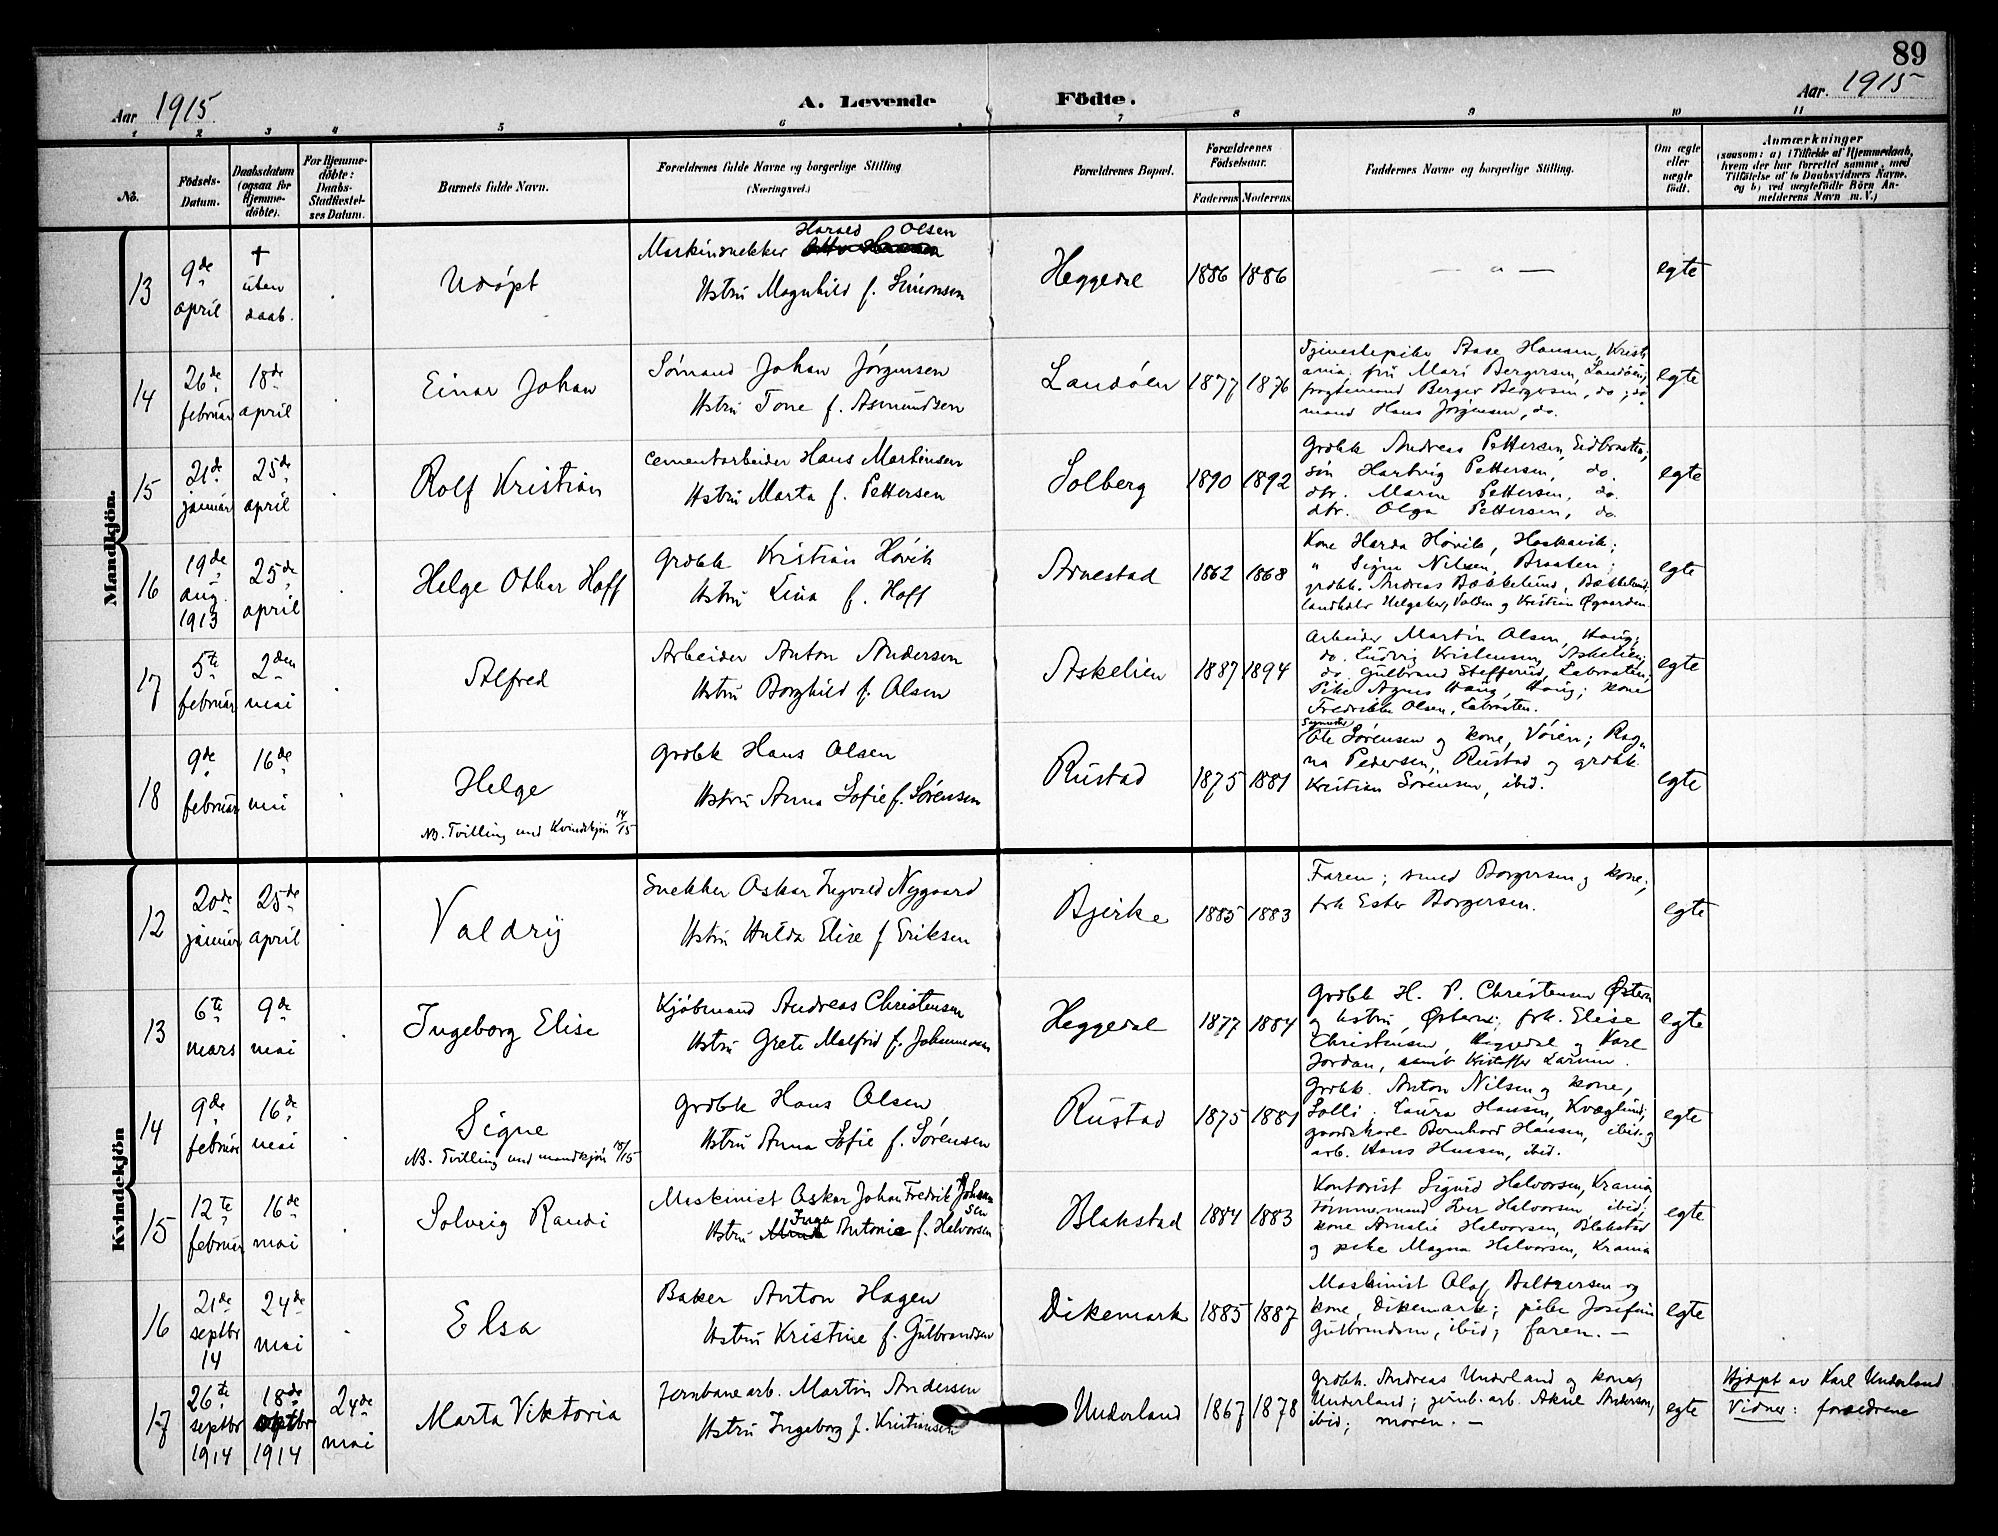 89
Aar 1915.
A. Levende Födte.
Aar. 1915
1 2 3 4 5 6 7 8 9 10 11
No.
Födsels-Datum.
Daabsdatum (ogsaa for Hjemme-döbte).
For Hjemme-döbte: Daabs-Stadfæstel-ses Datum.
Barnets fulde Navn.
Forældrenes fulde Navne og borgerlige Stilling (Næringsvei.)
Forældrenes Bopæl.
Forældrenes Födselsaar.
Faderens Moderens
Faddernes Navne og borgerlige Stilling.
Om ægte eller uægte födt.
Anmærkninger (saasom: a) i Tilfælde af Hjemmedaab, hvem der har forrettet samme, med Tilföielse af to Daabsvidners Navne. og b) ved uægtefödte Börn An-melderens Navn m. V.)
Mandkjön.
13
9de april
† uten daab.
Udøpt
Maskinsnekker Harald Olsen
Hstru Magnhild f. Simonsen
Heggedal
1886 1886
— „ —
egte
14
26de februar
18de april
Einar Johan
Sømand Johan Jørgensen
Hstru Tone f. Asmundsen
Landøen
1877 1876
Tjenestepike Aase Hansen, Kristi
ania. fru Mari Bergersen, Landøen;
fragtemand Berger Bergersen, do; sø
mand Hans Jørgensen, do.
egte
15
21de januar
25de april
Rolf Kristian
Cementarbeider Hans Martinsen
Hstru Marta f. Pettersen
Solberg
1890 1892
Grdbk Andreas Pettersen, Eidbraaten;
søn Hartvig Pettersen, do.
dtr. Marie Pettersen, do.
dtr. Olga Pettersen, do
egte
16
19de aug. 1913
25de april
Helge Othar Hoff
Grdbk Kristian Høvik
Hstru Lina f. Hoff
Arnestad
1862 1868
Kone Harda Høvik, Haskavik;
„ Signe Nilsen, Braaten;
grdbk. Andreas Bækkelund, Bækkelund
landhdlr Helgaker, Valden og Kristian Øgaarden.
egte
17
5te februar
2den mai
Alfred
Arbeider Anton Andersen
Hstru Borghild f. Olsen
Askelien
1887 1894
Arbeider Martin Olsen, Haug;
do. Ludvig Kristensen, Askelien;
do. Gulbrand Stefferud, Labraaten;
Pike Agnes Haug, Haug; kone
Fredrikke Olsen, Labraaten.
egte
18
9de februar
16de mai
Helge
NB. Tvilling med Kvindekjøn 14/15
Grdbk Hans Olsen
Hstru Anna Sofie f. Sørensen
Rustad
1875 1881
Ole Sørensen og kone, Vøien; Rag„
na Pedersen, Rustad og grdbk
Kristian Sørensen, ibid.
egte
Kvindekjön
12
20de januar
25de april
Valdrij
Snekker Oskar Ingvald Nygaard
Hstru Hulda Elise f Eriksen
Bjerke
1885 1883
Faren; smed Borgersen og kone;
frk Ester Borgersen.
egte
13
6te mars
9de mai
Ingeborg Elise
Kjøbmand Andreas Christensen
Hstru Grete Malfrid f. Johannesen
Heggedal
1877 1884
Grdbk H. P. Christensen Østern
og hstru, Østern; frk. Elise
Christensen, Heggedal og Karl
Jordan, samt Kristoffer Larsen.
egte
14
9de februar
16de mai
Signe
NB. Tvilling med mandkjøn 18/15
Grdbk Hans Olsen
Hstru Anna Sofie f. Sørensen
Rustad
1875 1881
Grdbk. Anton Nilsen og kone,
Solli; Laura Hansen, Kvæglund;
gaardskarl Bernhard Hansen, ibid. og
arb. Hans Hansen, ibid.
egte
15
12te februar
16de mai
Solveig Randi
Maskinist Oskar Johan Fredrik Johansen
Hstru Inga Antonie f. Halvorsen
Blakstad
1884 1883
Kontorist Sigurd Halvorsen, Krania
Tømmermand Iver Halvorsen ibid;
kone Amalie Halvorsen, Blakstad
og pike Magna Halvorsen, Krania
egte
16
21de septbr 14
24de mai
Elsa
Baker Anton Hagen
Hstru Kristine f. Gulbrandsen
Dikemark
1885 1887
Maskinist Olaf Baltzersen og
kone, Dikemark; pike Josefine
Gulbrandsen, ibid; faren. —
egte
17
26de septbr 1914
18de septbr 1914
24de mai
Marta Viktoria
Jernbanearb. Martin Andersen
Hstru Ingeborg f. Kristiansen
Underland
1867 1878
grdbk. Andreas Underland og kone,
Underland; jernb. arb. Aksel Andersen,
ibid; moren. —
egte
Hjdøpt av Karl Underland.
Vidner: forældrene